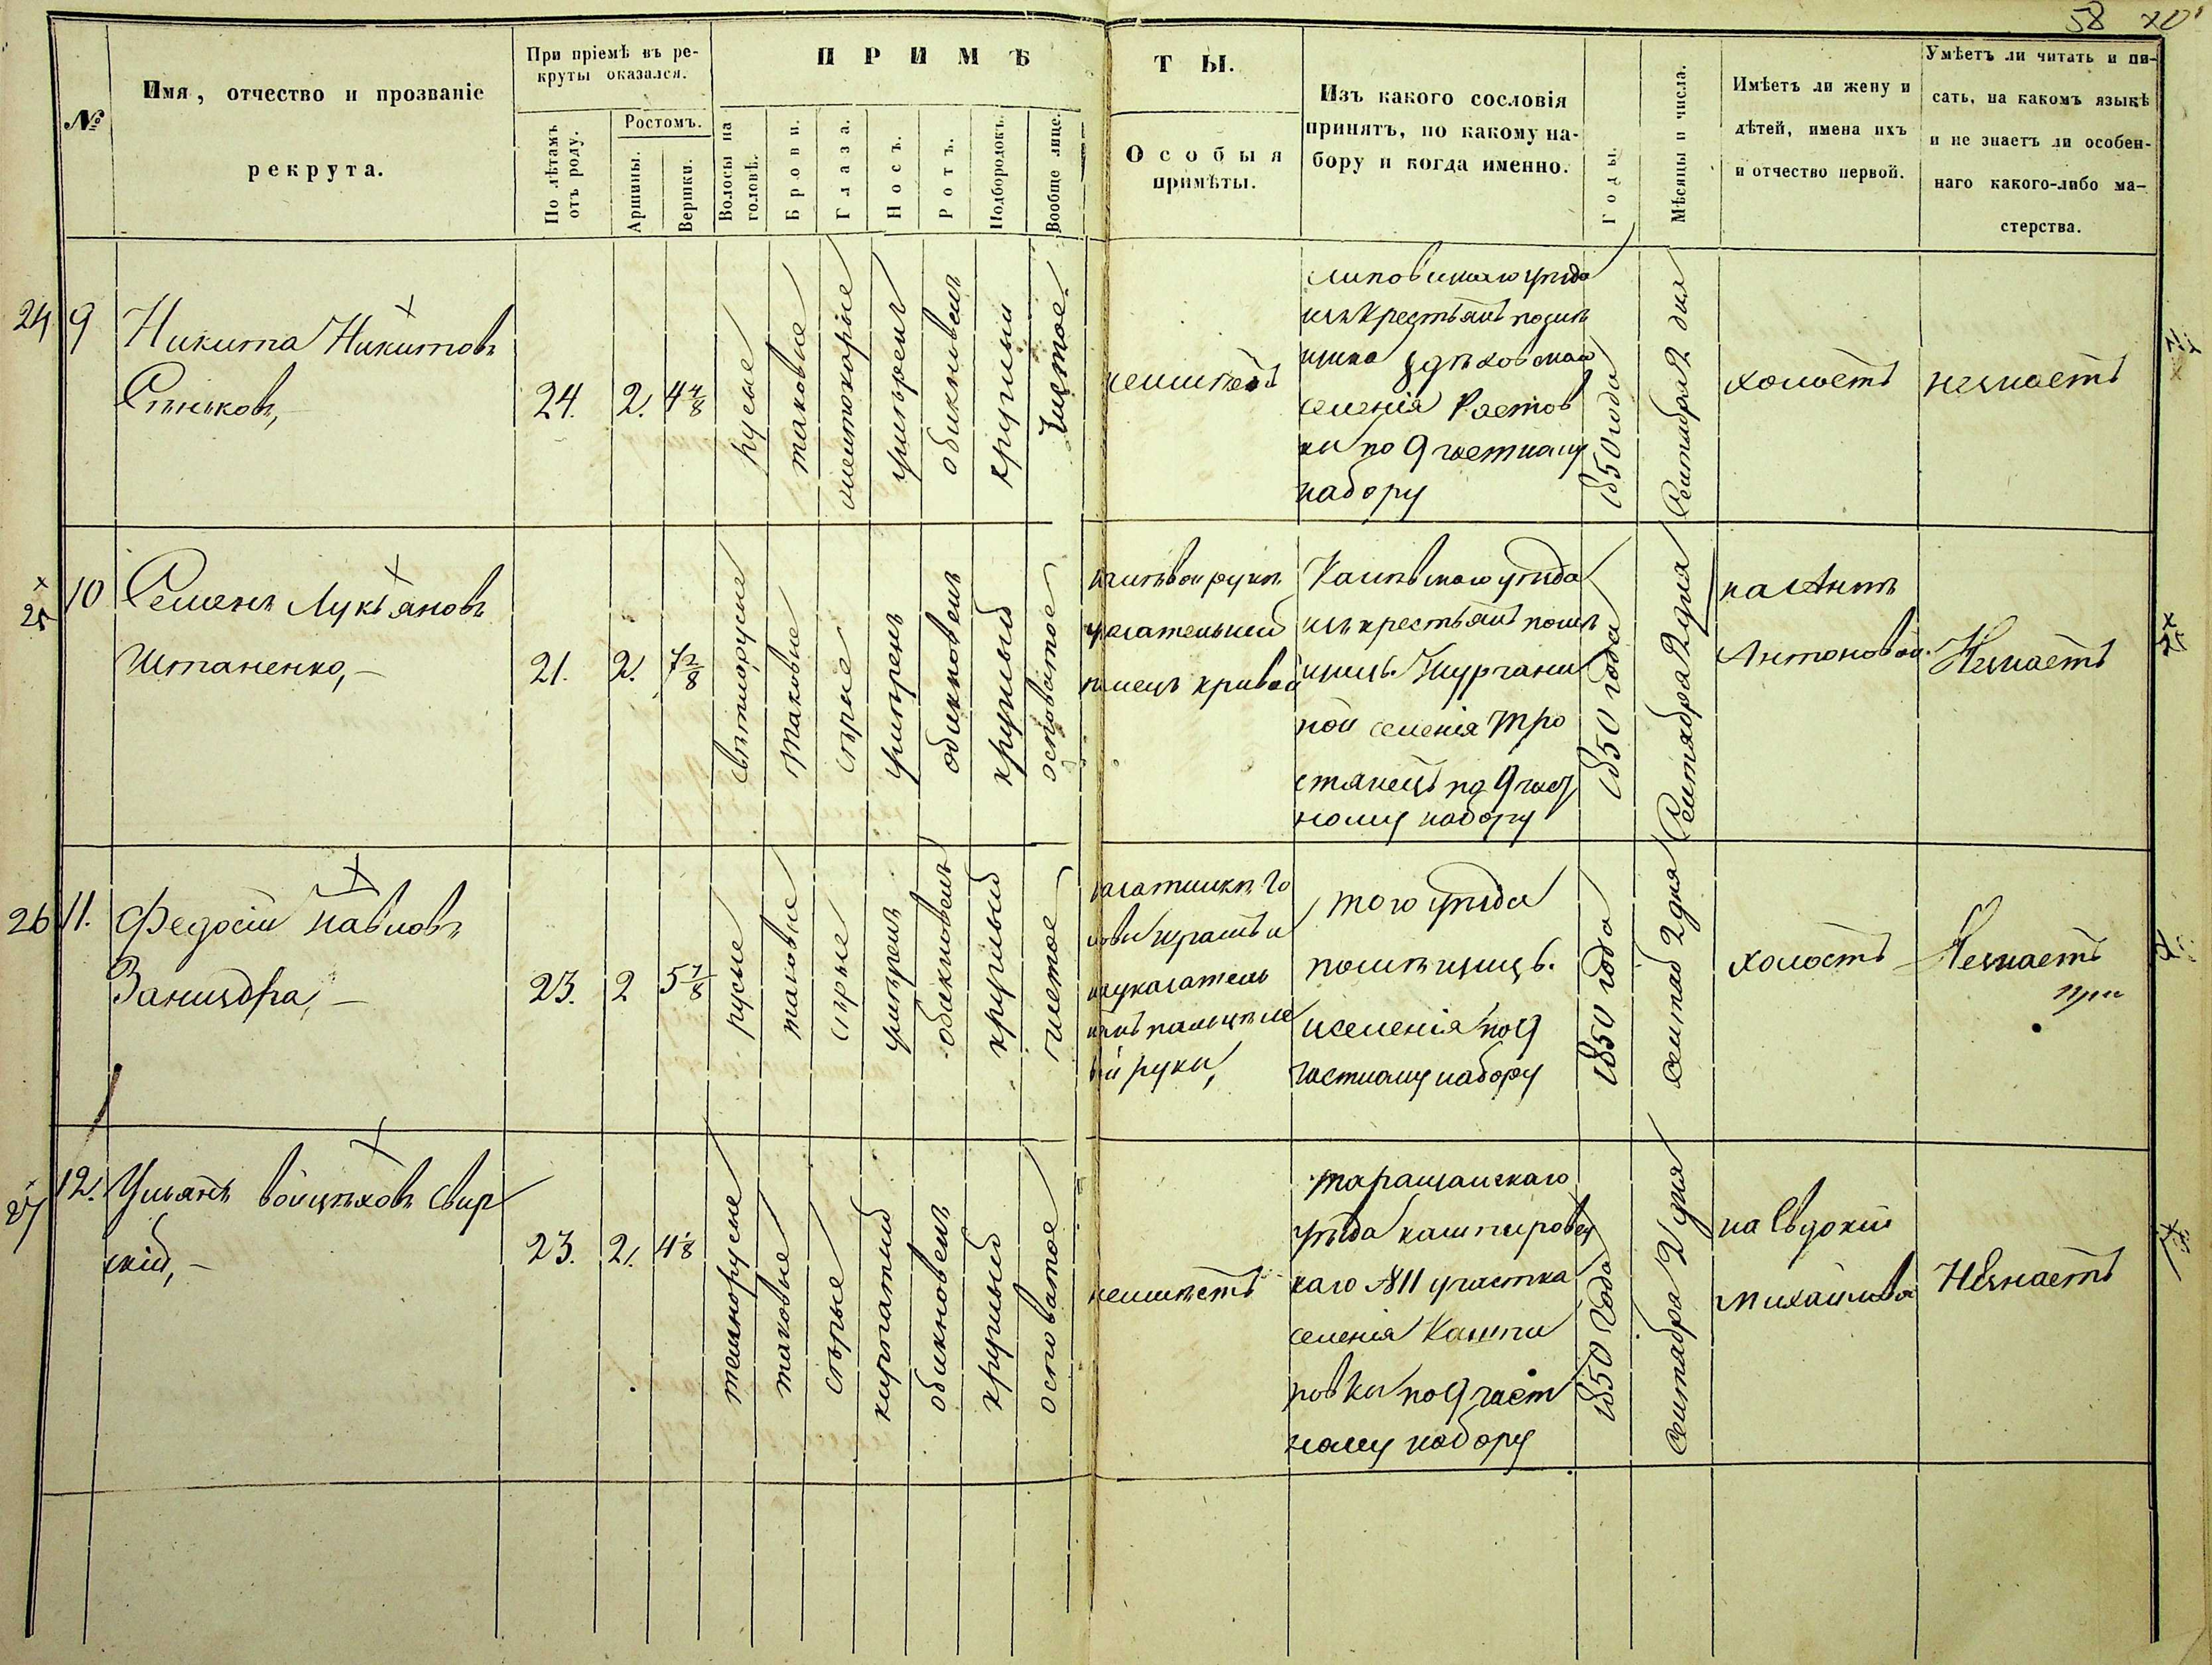 58
№
Имя, отчество и прозваніе
рекрута.
При пріемѣ въ ре-
круты оказался.
По лѣтамъ
отъ роду.
Ростомъ.
Аршины.
Вершки.
ПРИМѢ
Волосы на
головѣ.
Брови.
Глаза.
Носъ.
Ротъ.
Подбородокъ.
Вообще лице.
ТЫ.
Особыя
примѣты.
Изъ какого сословія
принятъ, по какому на-
бору и когда именно.
Годы.
Мѣсяцы и числа.
Имѣетъ ли жену и
дѣтей, имена ихъ
и отчество первой.
Умѣетъ ли читать и пи-
сать, на какомъ языкѣ
и не знаетъ ли особен-
наго какого-либо ма-
стерства.
24
9
Никита Никитовъ
Сѣньковъ,
24.
2.
4 4/8
русые
таковые
умѣрен
обикновен
круглый
Чистое.
неимѣетъ
Липовецкаго уѣзда
изъ крестьянъ помѣ
щика
селенія Ростов
ки по 9 частному
набору
1850 года
Сентября 2 дня
холостъ
незнаетъ
25
10
Семенъ Лукьяновъ
Штаненко,-
21.
2.
7 2/8
свѣтлорусые
таковые
сѣрые
умѣренъ
обикновен
круглый
осповатое
на лѣвой рукѣ
указательный
палецъ кривой
Каневскаго уѣзда
изъ крестьянъ помѣ
щицы
ной селенія Тро
стянецъ по 9 част
ному набору
1850 года
Сентября 2 дня
на Аннѣ
Антоновой.
Незнаетъ
26
11.
Федосій Павловъ
Заницдра,-
23.
2
5 7/8
русые
таковые
сѣрые
умѣрен
обикновен
круглый
чистое
на затилкѣ го
ловы шрамъ и
на указатель
номъ пальцѣ лѣ
вой руки,
того уѣзда
помѣщицы.
и селенія по 9
частному набору
1850 года
Сентяб 2 дня
холостъ
Незнаетъ
27
12.
Ульянъ Войцѣховъ Свир
скій,-
23.
2.
4 1/8
темнорусые
таковые
сѣрые
курпатый
обикновен
круглый
осповатое
неимѣетъ
таращанскаго
уѣзда кашперовс
каго №11 участка
селенія Кашпи
ровки по 9 част
ному набору
1850 года
Сентября 2 дня
на Евдокіи
Михайловой
Незнаетъ